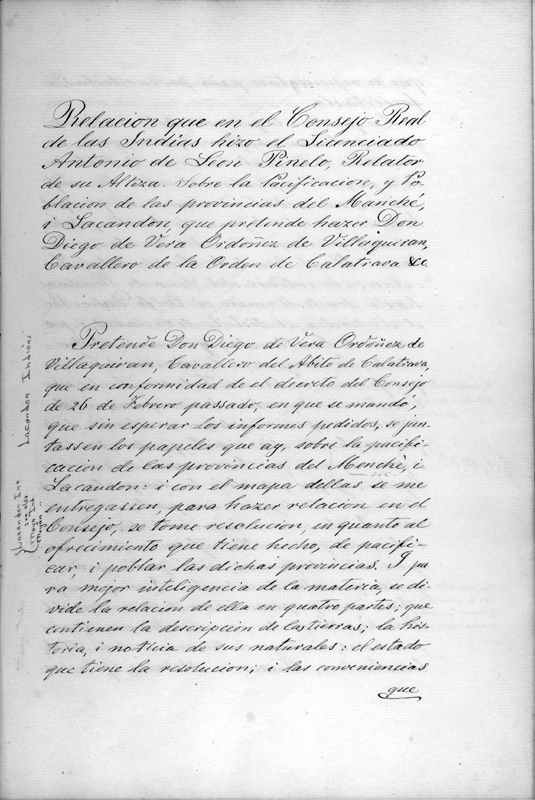 Relacion que en el Consejo Real
de las Indias hizo el Licenciado
Antonio de Lion Pinelo, Relator
de su Alteza. Sobre la Pacificacion, y Po-
blacion de las provincias del Manché,
i Lacandon, que pretende hazer Don
Diego de Vera Ordoñez de Villaquiran,
Cavallero de la Orden de Calatrava &c.
Pretende Don Diego de Vera Ordoñez de
Villaquiran, Cavallero del Abito de Calatrava,
que en conformidad de el decreto del Consejo
de 26 de Febrero passado, en que se mandó,
que sin esperar los informes pedidos, se jun-
tassen los papeles que ay, sobre la pacifi-
cacion de las provincias del Menchè, i
Lacandon: i con el mapa dellas se me
entregassen, para hazer relacion en el
Consejo, se tome resolucion, en quanto al
ofrecimiento que tiene hecho, de pacifi-
car, i poblar las dichas provincias. I pa-
ra mejor inteligencia de la materia, se di-
vide la relacion de ella en quatro partes; que
contienen la descripcion de las tierras; la his-
toria, i noticia de sus naturales: el estado
que tiene la resolucion; i las conveniencias
que
Lacandon Indians
Lacandon Ind.
see also
Maya Ind.